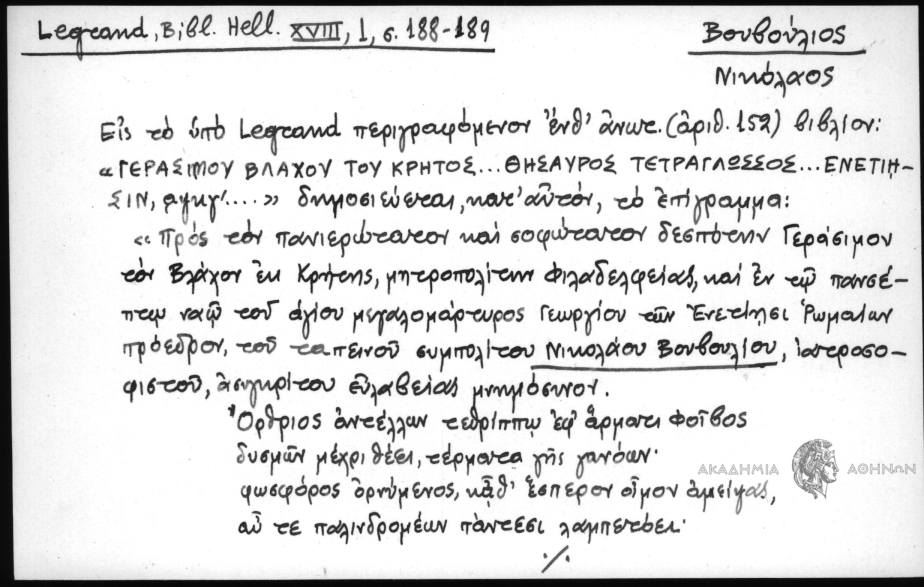 Legrand, Βιβλ. Hell. XVIII, 1, σ. 188-189
Βουβούλιος
Νικόλαος
Εἰς τὸ ὑπὸ Legrand περιγραφόμενον ἔνθ' ἄνωτ. (ἀριθ. 152) βιβλίον:
«ΓΕΡΑΣΙΜΟΥ ΒΛΑΧΟΥ ΤΟΥ ΚΡΗΤΟΣ... ΘΗΣΑΥΡΟΣ ΤΕΤΡΑΓΛΩΣΣΟΣ... ΕΝΕΤΙΗ-
ΣΙΝ, αψκγ'....» δημοσιεύεται, κατ' αὐτόν, τὸ ἐπίγραμμα:
«Πρὸς τὸν πανιερώτατον καὶ σοφώτατον δεσπότην Γεράσιμον
τὸν Βλάχον ἐκ Κρήτης, μητροπολίτην Φιλαδελφείας, καὶ ἐν τῷ πανσέ-
πτῳ ναῷ τοῦ ἁγίου μεγαλομάρτυρος Γεωργίου τῶν Ἐνετίῃσι Ῥωμαίων
πρόεδρον, τοῦ ταπεινοῦ συμπολίτου Νικολάου Βουβουλίου, ἰατροσο-
φιστοῦ, ἀσυγκρίτου εὐλαβείας μνημόσυνον.
Ὄρθριος ἀντέλλων τεθρίππῳ ἐφ' ἅρματι Φοῖβος
δυσμῶν μέχρι θέει, τέρματα γῆς γανόων·
φωσφόρος ὀρνύμενος, κᾆθ' ἕσπερον οἶμον ἀμείψας,
αὖ τε παλινδρομέων πάντεσι λαμπετόει·
./.
ΑΚΑΔΗΜΙΑ ΑΘΗΝΩΝ